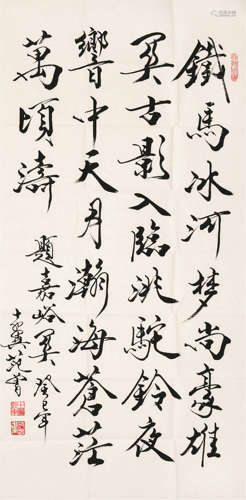 鐵馬冰河梦尚豪雄
関古影入臨洮駝鈴夜
響中天月瀚海蒼茫
萬頃濤
題嘉峪関 癸巳年
十翼范曾